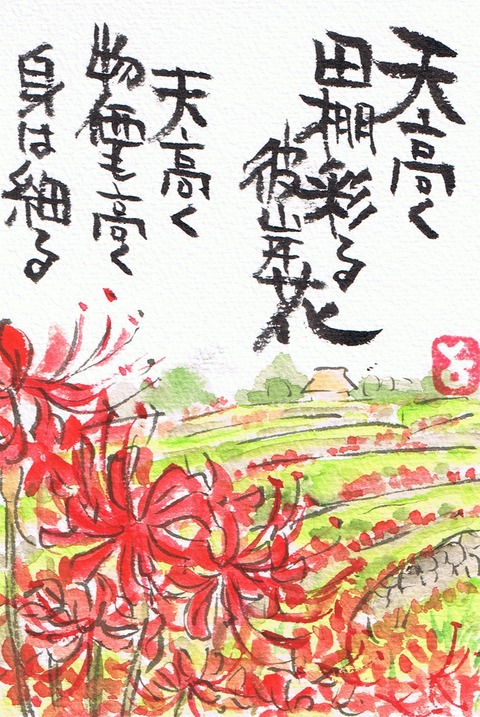 天高く
田棚彩る
彼岸花
天高く
物価も高く
身は細る